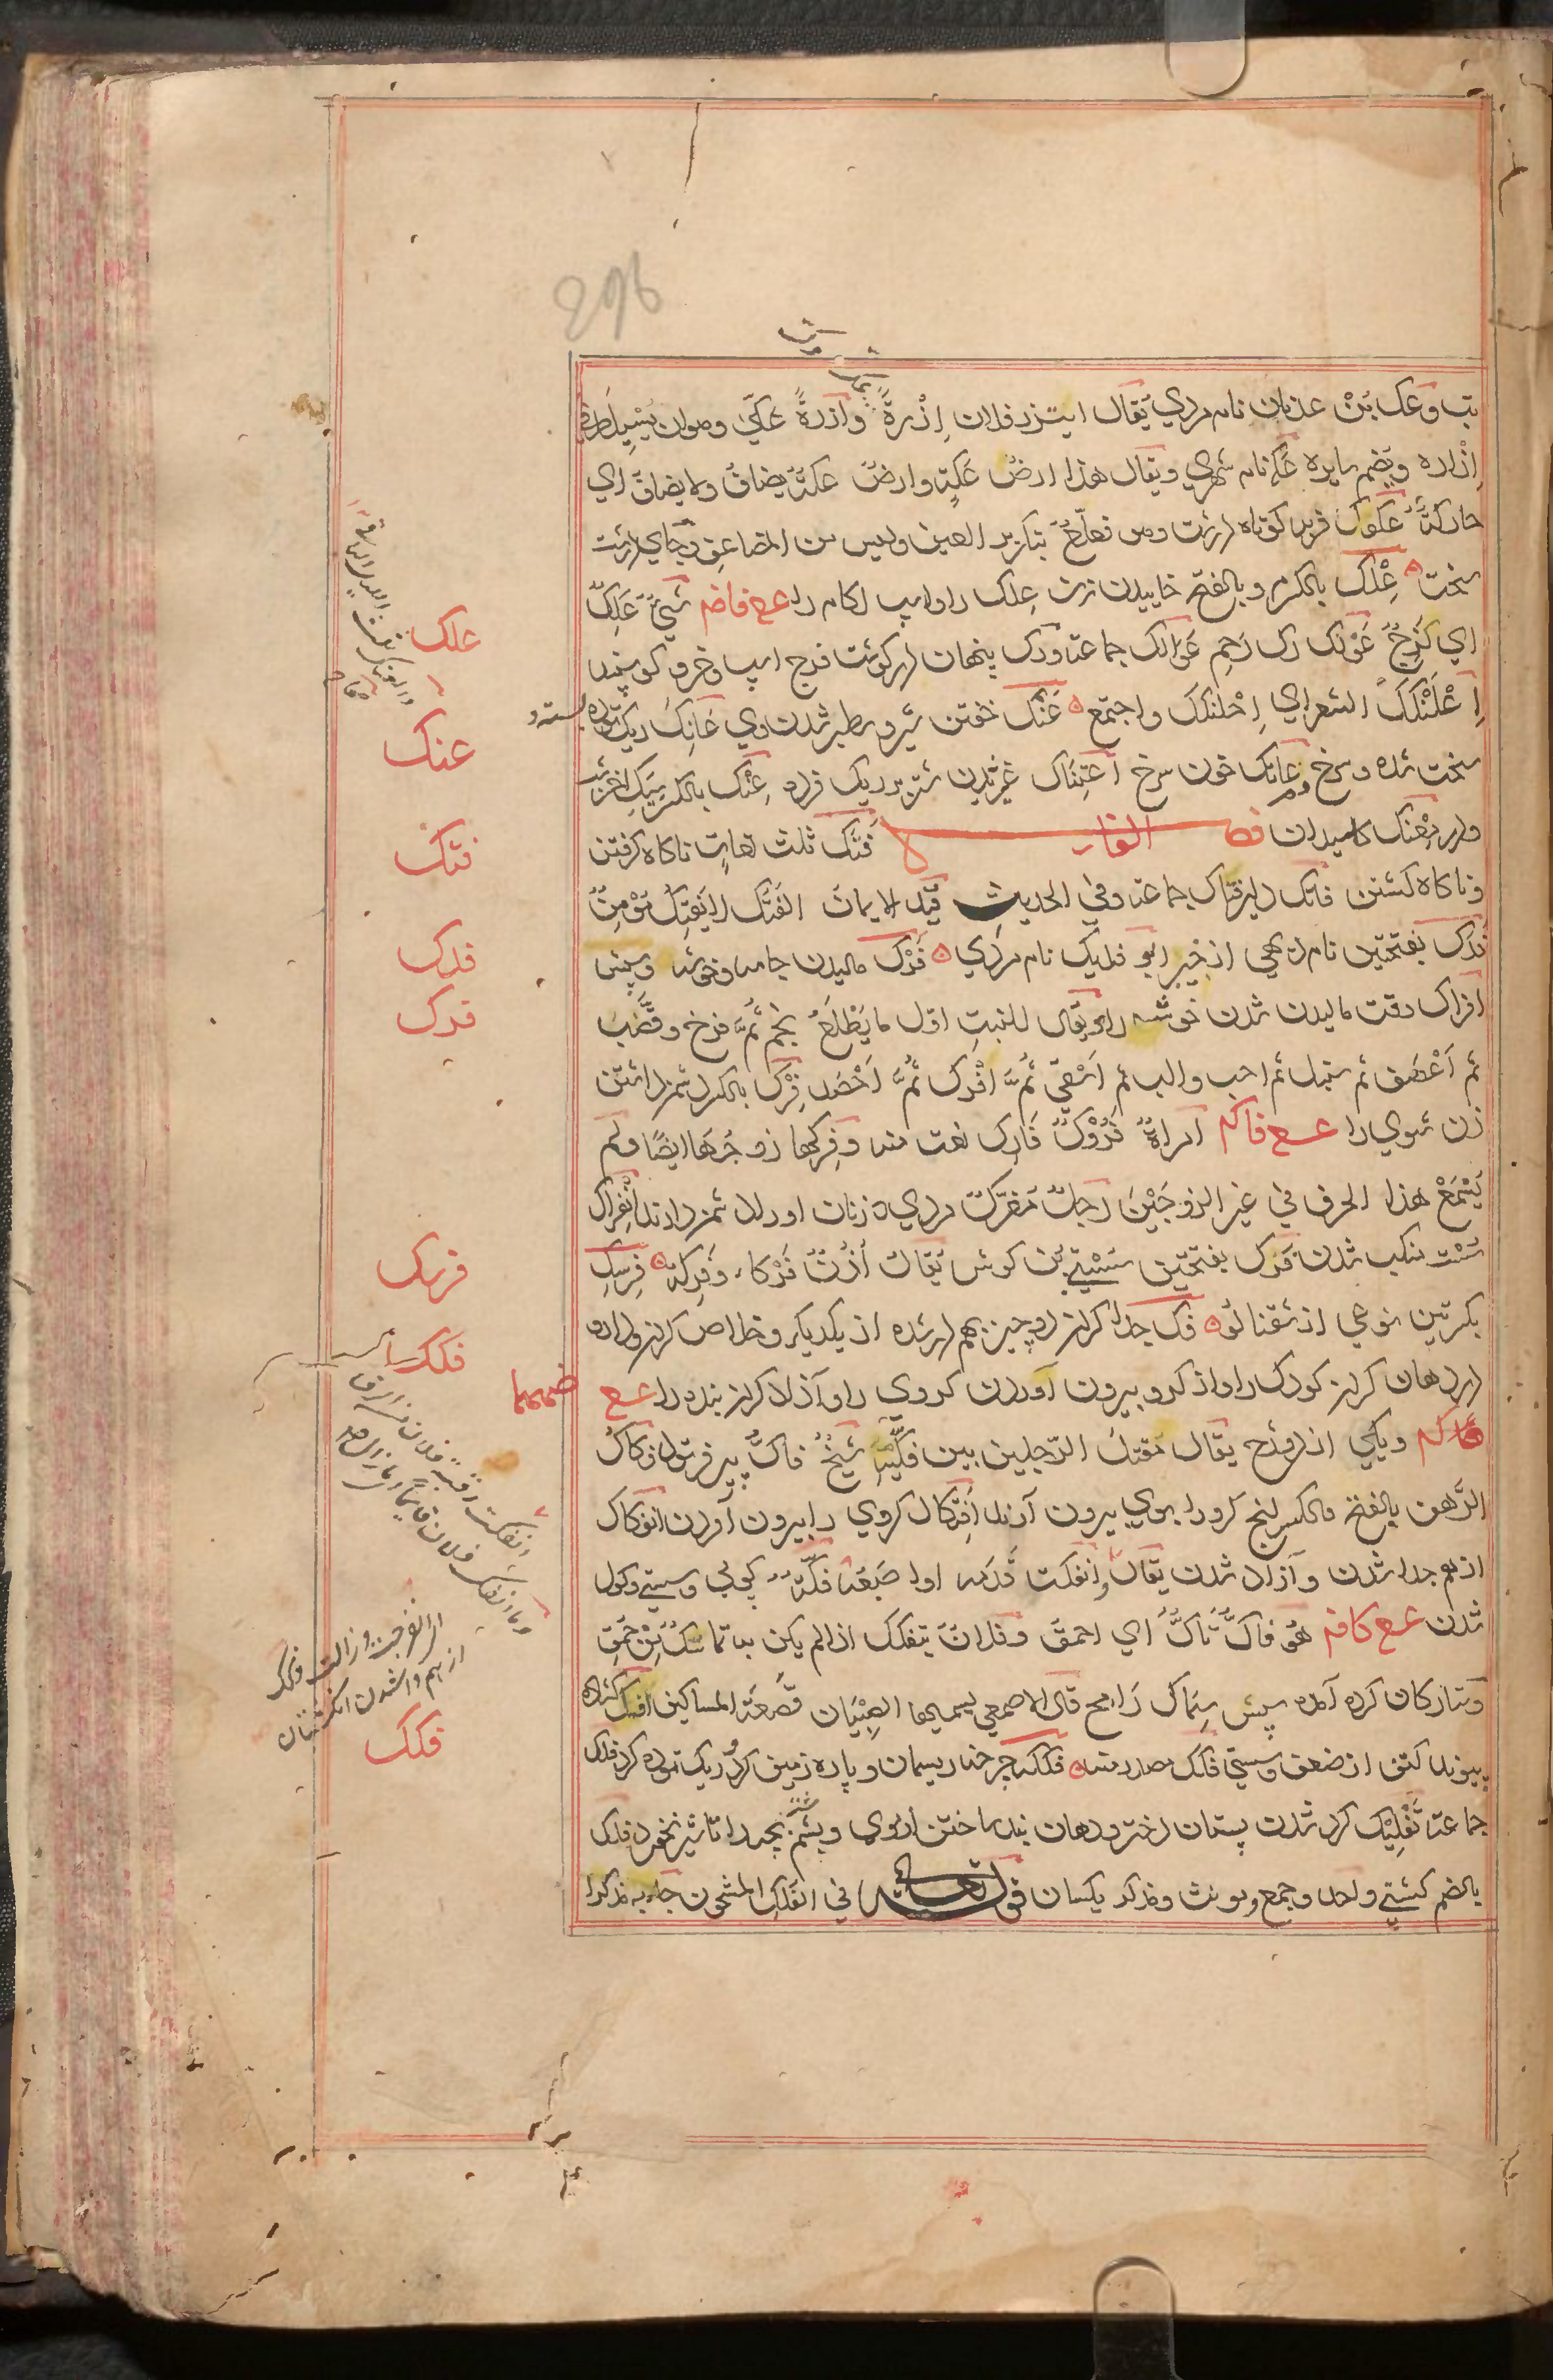 296
تب وعک بن عدنان نام مردي يقال ایتزر فلان اِزْرةً وازرةً عکي وهوان يُسْبِل طرفي
اِزاره وبضم بابره عکه نام شهري ويقال هذا ارضٌ عَکةٍ وارضٌ عکةٌ يضاف ولا يضاف اي
حارکةٌ عکوک فربه کوتاه درشت وهو فعلّع بتکریر العین ولیس من المضاعف وجاي درشت
سخت ه عِلْک بالکسر وبالفتح خاییدن زن عِلک را واسپ لکام را عع فاضم شيٌ عَلِکٌ
اي لَزِجٌ عَوْلک رک رَحِم عَوالک جماعة ورک پنهان در کوشت فرج اسپ وخر و کوسپند
اِعْلَنْکَکَ الشعراي اِحْلَنکک واجتمع ه عَنْک خفتن شیر وسطبر شدن وي عَانِک ریک توده بسته و
سخت شده وسرخ وعانک خون سرخ اعتناک غیژیدن شتر بر ریک فراه عِنْک بالکسر سیک اخر شب
ودر مِعْنک کلیدان فصل الفاء فَتْک ثلث لغات ناکاه کرفتن
وناکاه کشتن فاتک دلیر فتاک جماعة وفي الحدیث قیّد الایمان الفَتْک لا یَفتِک مُؤمِنٌ
فَدَک بفتحتین نام دهي از خیبر ابو فدیک نام مردي ه فَرْک مالیدن جامه وخوشه وجز
افراک وقت مالیدن شدن خوشه را ویقال للنبت اول ما یَطْلَعُ نجم ثُمَّ فرخ وقَصَّبَ
ثم اَعْصَف ثم سنبل ثم احب والب ثم اَسْفي ثُمَّ افْرک ثُمَّ اَحْصَد فِرْک بالکسر دشمن داشتن
زن شوي را عع فاکم امراةٌ فَرُوْکٌ فَارِک نعت منه وفِرکها زوجُهَا ایضًا ولم
یُسْمَعْ هذا الحرف في غیر الزوجَیْنِ رَجلٌ مُفَرّکٌ مردي که زنان اورا دشمن دارند انْفراک
سُسْت منکب شدن فَرَک بفتحتین سُسْتي بُن کوش یُقال اُذُنٌ فَرْکاء وفَرِکة ه فِرْسِک
بکسرتین نوعي از شفتالو ه فک جدا کردن دو چیز بهم در شده از یکدیکر وخلاص کردن ودارو
در دهان کردن کودک را واز کرو بیرون آوردن کروي را وآزاد کردن بنده را عع
فاکم ویکي از دو فدح یقال مَقتَلُ الرّجلین بین فکّیهِ شیخٌ فاکٌ پیر فرتوت فکاکُ
الرَّهن بالفتح والکسر انچ کرو را بوي بیرون آرند اَفتکاک کروي را بیرون آوردن انفکاک
از هم جدا شدن وآزاد شدن یقال انفکت قدَمه او اِصبَعُه فکّة کولي وسستي وکول
شدن عع کافم هُو فاکٌّ تاکٌّ اي احمق وفلان یتفکک اذا لم یکن به تماسُک مِن حُمقٍ
وستارکان کرد آمده پیش سِماک رامح قال الاصمعي یسمیها الصِبْیَان قَصْعَة المساکین افک کشاده
پیوند کتف از ضعف وسستي فکک مصدر منه ه فلکه چرخه ریسمان وپاره زمین کرد وریک توده کرد فلک
جماعة تَفْلِیک کرد شدن پستان دختر ودهان بند ساختن از موي وپشم بچه را تا شیر نخورد فلک
بالضم کشتي واحد وجمع ومونث ومذکر یکسان قوله تعالي في الفُلکِ المشحون جاء به مذکرا
علک
عنک
فتک
فدک
فرک
فرسک
فکک
فلک
انفکت رقبة فلان من الرق
وما انفک فلان قایماً اي ما زال قایما
اي انفرجت وزالت وفکک
از هم واشدن انکشتان